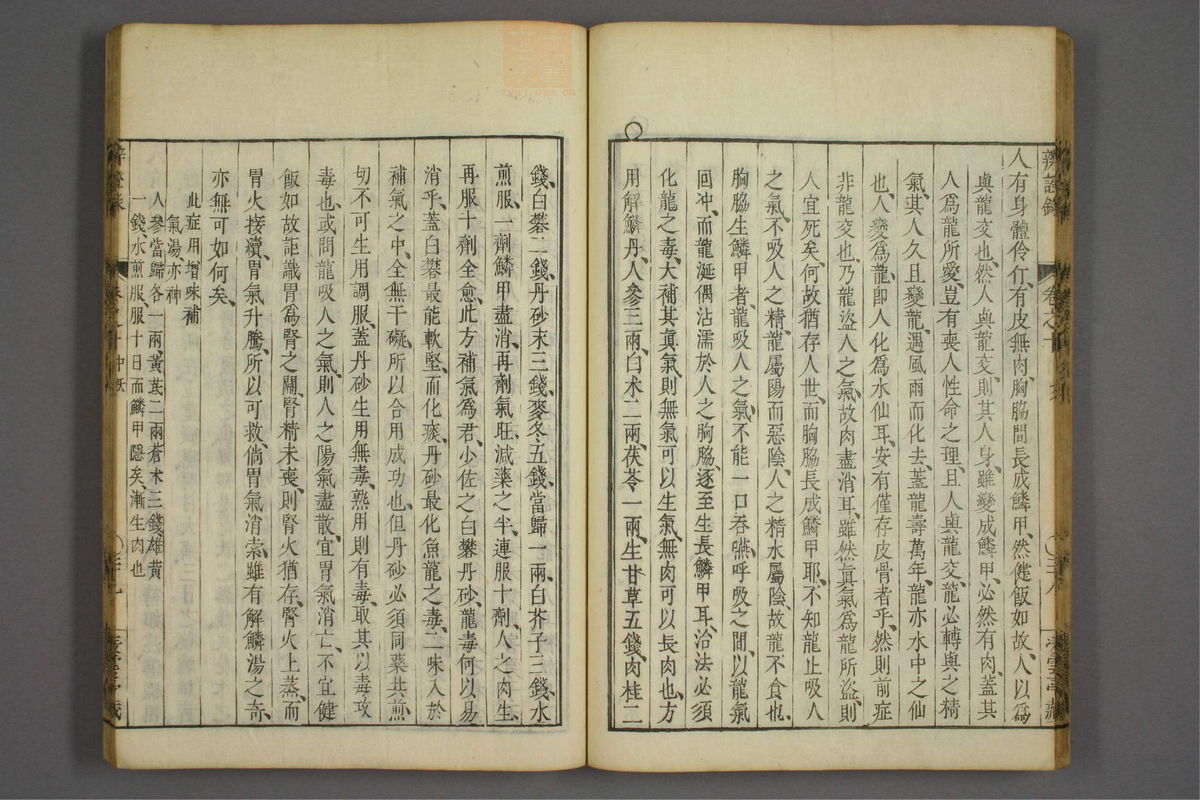 辨證錄 卷之十
人有身體伶仃、有皮無肉、胸脇間長成鱗甲、然健飯如故、人以爲
與龍交也、然人與龍交、則其人身雖變成鱗甲、必然有肉、蓋其
人爲龍所愛、豈有喪人性命之理、且人與龍交、龍必轉與之精
氣、其人久且變龍、遇風雨而化去、蓋龍壽萬年、龍亦水中之仙
也、人變爲龍、即人化爲水仙耳、安有僅存皮骨者乎、然則前症
非龍交也、乃龍盜人之氣、故肉盡消耳、雖然眞氣爲龍所盜、則
人宜死矣、何故猶存人世、而胸脇長成鱗甲耶、不知龍止吸人
之氣、不吸人之精、龍屬陽而惡陰、人之精水屬陰、故龍不食也、
胸脇生鱗甲者、龍吸人之氣、不能一口吞嚥、呼吸之間、以龍氣
回沖、而龍涎偶沾濡於人之胸脇、逐至生長鱗甲耳、治法必須
化龍之毒、大補其眞氣、則無氣可以生氣、無肉可以長肉也、方
用解鱗丹、人參三兩、白朮二兩、茯苓一兩、生甘草五錢、肉桂二
錢、白礬二錢、丹砂末三錢、麥冬五錢、當歸一兩、白芥子三錢、水
煎服、一劑鱗甲盡消、再劑氣旺、減藥之半、連服十劑、人之肉生、
再服十劑全愈、此方補氣爲君、少佐之白礬丹砂、龍毒何以易
消乎、蓋白礬最能軟堅、而化痰、丹砂最化魚龍之毒、二味入於
補氣之中、全無干礙、所以合用成功也、但丹砂必須同藥共煎、
切不可生用調服、蓋丹砂生用無毒、熟用則有毒、取其以毒攻
毒也、或問龍吸人之氣、則人之陽氣盡散、宜胃氣消亡、不宜健
飯如故、詎識胃爲腎之關、腎精未喪、則腎火猶存、腎火上蒸、而
胃火接續、胃氣升騰、所以可救、倘胃氣消索、雖有解鱗湯之奇、
亦無可如何矣、
此症用增味補
氣湯亦神
人參當歸各一兩、黃芪二兩蒼朮三錢、雄黃
一錢、水煎服、服十日而鱗甲隱矣、漸生肉也